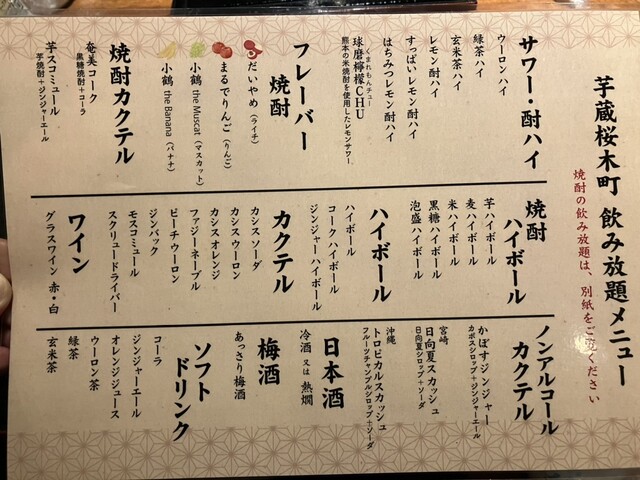 芋蔵桜木町 飲み放題メニュー
焼酎の飲み放題は、別紙をご覧ください
サワー・酎ハイ
ウーロンハイ
緑茶ハイ
玄米茶ハイ
レモン酎ハイ
すっぱいレモン酎ハイ
はちみつレモン酎ハイ
くまれもんチュー
球磨檸檬CHU
熊本の米焼酎を使用したレモンサワー
フレーバー
焼酎
だいやめ(ライチ)
まるでりんご(りんご)
小鶴 the Muscat(マスカット)
小鶴 the Banana(バナナ)
焼酎カクテル
奄美コーク
黒糖焼酎+コーラ
芋スコミュール
芋焼酎+ジンジャーエール
焼酎
ハイボール
芋ハイボール
麦ハイボール
米ハイボール
黒糖ハイボール
泡盛ハイボール
ハイボール
ハイボール
コークハイボール
ジンジャーハイボール
カクテル
カシスソーダ
カシスウーロン
カシスオレンジ
ファジーネーブル
ピーチウーロン
ジンバック
モスコミュール
スクリュードライバー
ワイン
グラスワイン 赤・白
ノンアルコール
カクテル
かぼすジンジャー
カボスシロップ+ジンジャーエール
宮崎
日向夏スカッシュ
日向夏シロップ+ソーダ
沖縄
トロピカルスカッシュ
フルーツチャンプルシロップ+ソーダ
日本酒
冷酒 又は 熱燗
梅酒
あっさり梅酒
ソフト
ドリンク
コーラ
ジンジャーエール
オレンジジュース
ウーロン茶
緑茶
玄米茶